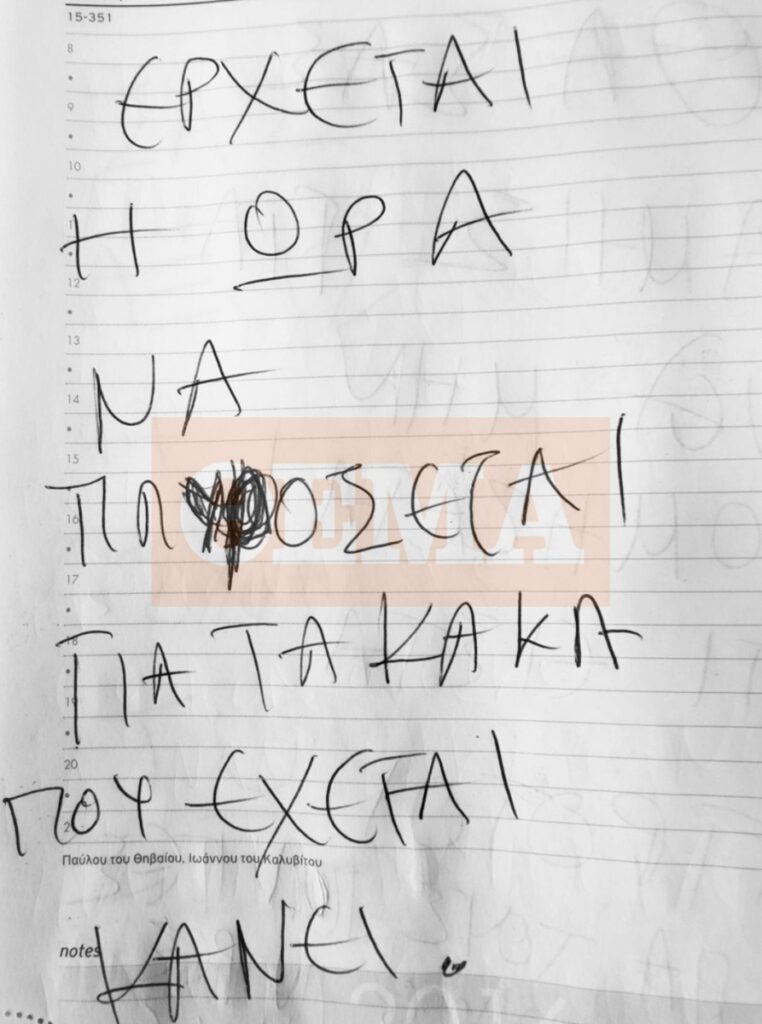 15-351
8
9
ΕΡΧΕΤΑΙ
10
11
Η ΩΡΑ
12
13
ΝΑ
14
15
ΘΕΜΑ
16
17
ΓΙΑ ΤΑ ΚΑΚΑ
18
19
20
ΠΟΥ ΕΧΕΤΑΙ
21
Παύλου του Θηβαίου, Ιωάννου του Καλυβίτου
notes
ΚΑΝΕΙ.